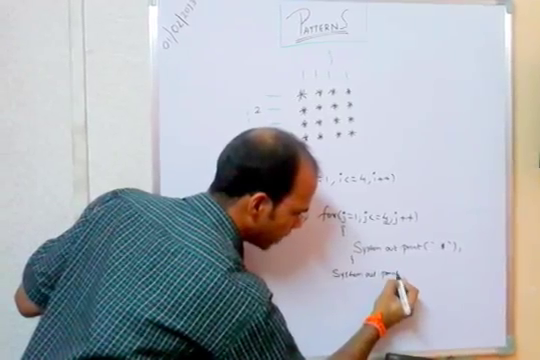 01/02/2017
PATTERNS
j
1 1 1 1
* * * *
2 * * * *
* * * *
* * * *
=1, i<=4, i++)
for(j=1, j<=4, j++)
{
System out print(" * "),
}
System out print